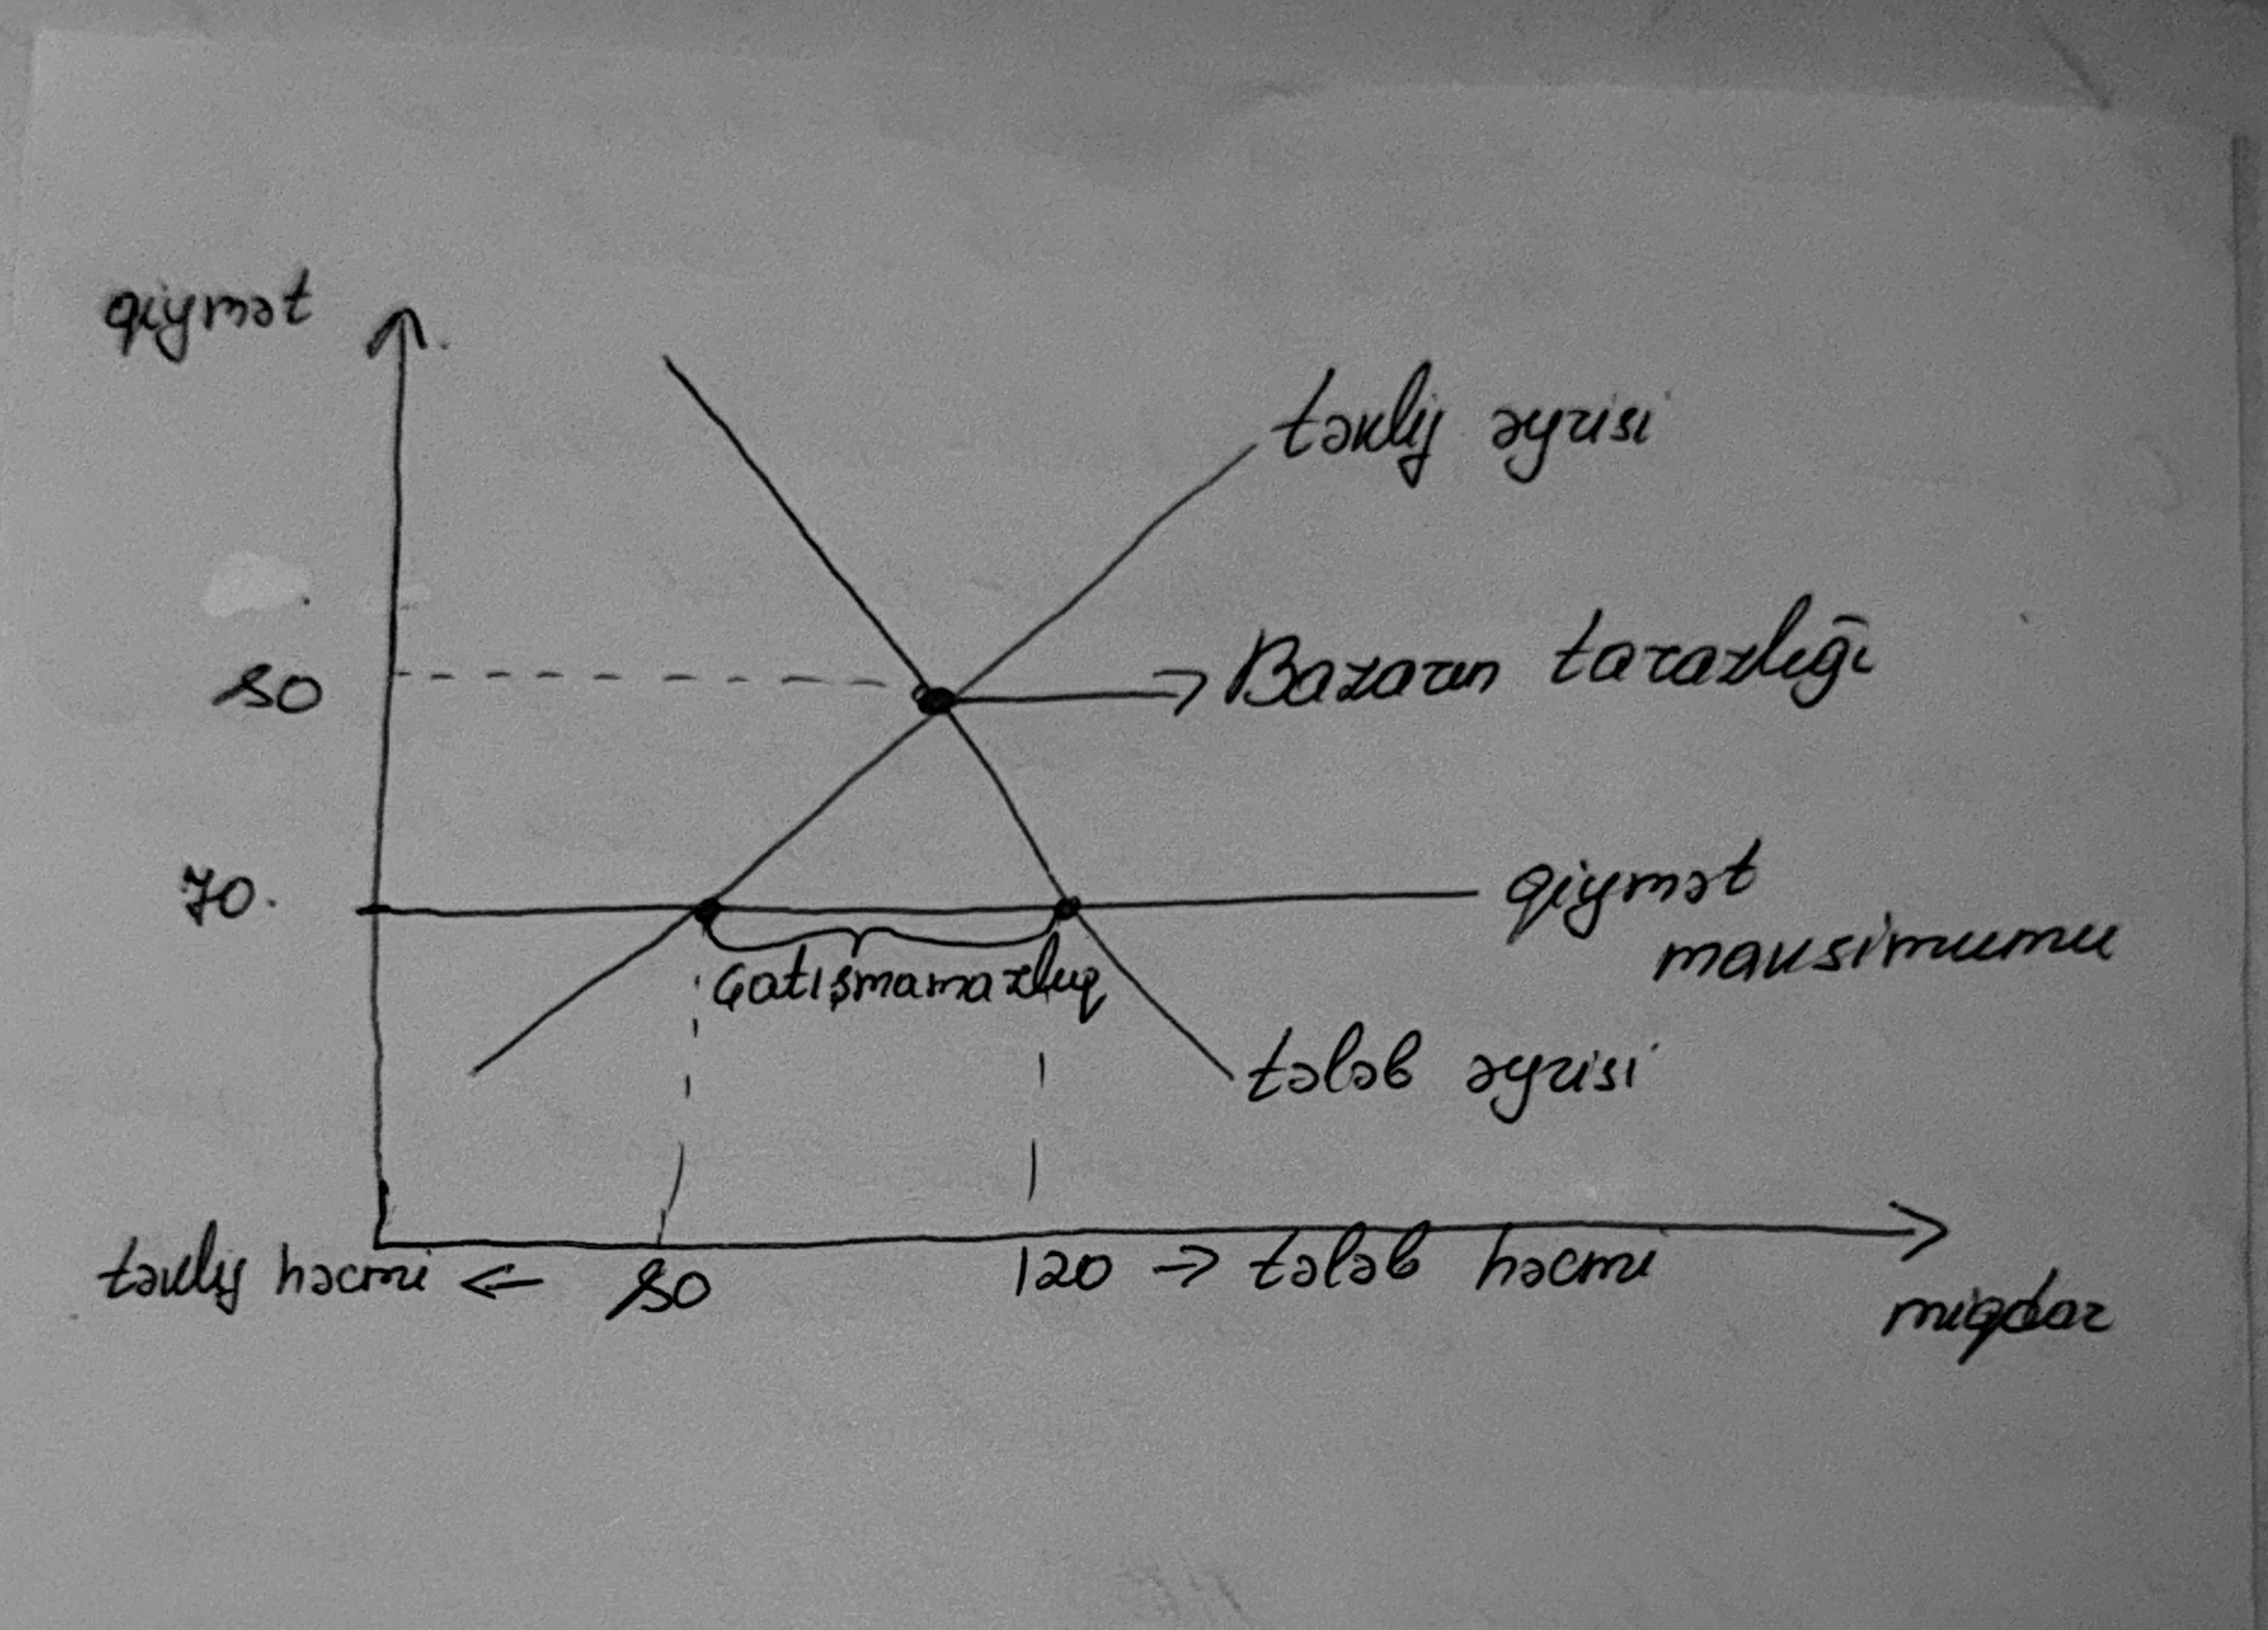 qiymət
təklif əyrisi
80
Bazarın tarazlığı
70.
qiymət
maksimumu
çatışmamazlıq
tələb əyrisi
təklif həcmi ← 80
120 → tələb həcmi
miqdar